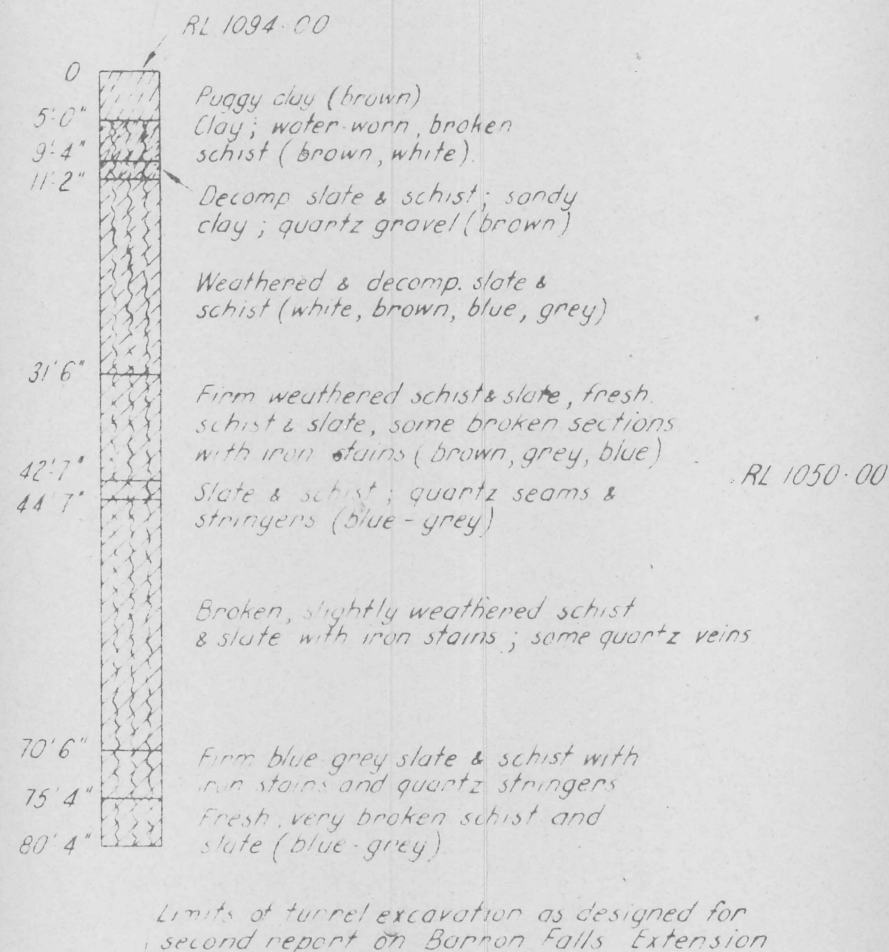 RL 1094·00
0
Puggy clay (brown)
5'0"
Clay; water-worn, broken
9'4"
schist (brown, white).
11'2"
Decomp slate & schist; sandy
clay; quartz gravel (brown)
Weathered & decomp. slate &
schist (white, brown, blue, grey)
31'6"
Firm weathered schist & slate, fresh
schist & slate, some broken sections
with iron stains (brown, grey, blue)
42'7"
RL 1050·00
44'7"
Slate & schist; quartz seams &
stringers (blue-grey)
Broken, slightly weathered schist
& slate with iron stains; some quartz veins
70'6"
Firm blue grey slate & schist with
iron stains and quartz stringers
75'4"
Fresh, very broken schist and
80'4"
slate (blue-grey)
Limits of tunnel excavation as designed for
second report on Barron Falls Extension